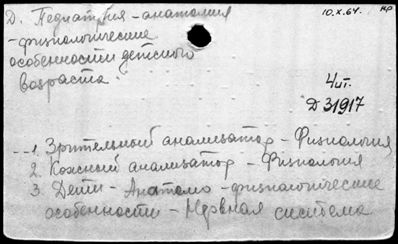 Д. Педиатрия - анатомия
10.X.64.
кр
- физиологические
особенности детского
возраста.
Чит.
Д 31917
1. Зрительный анализатор - Физиология
2. Кожный анализатор - Физиология
3. Дети - Анатомо - физиологические
особенности - Нервная система